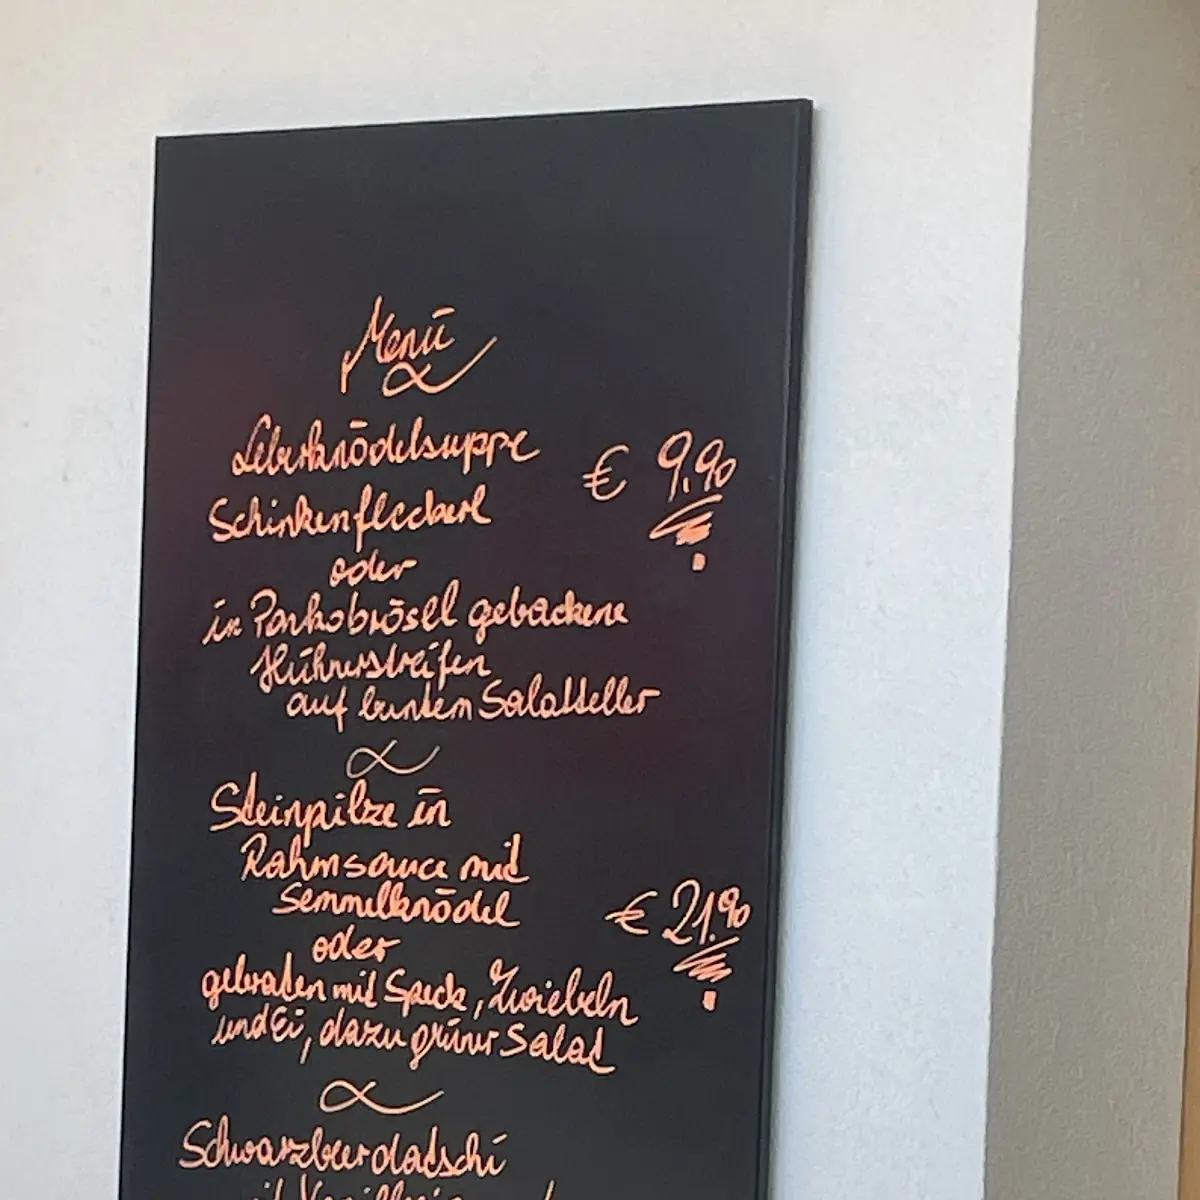 Menü
Leberknödelsuppe
€ 9,90
Schinkenfleckerl
oder
in Pankobrösel gebackene
Hühnerstreifen
auf buntem Salatteller
Steinpilze in
Rahmsauce mit
Semmelknödel
€ 21,90
oder
gebraten mit Speck, Zwiebeln
und Ei, dazu grüner Salat
Schwarzbeerdatschi
mit